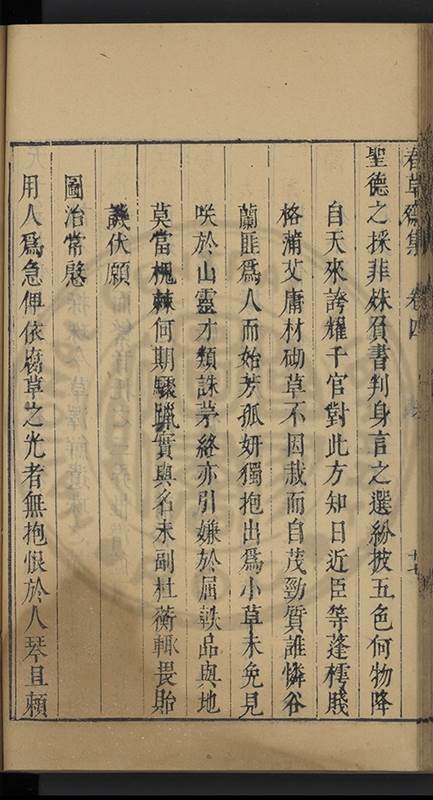 春草齋集 卷四
聖德之採菲殊負書判身言之選紛披五色何物降
自天來誇耀千官對此方知日近臣等蓬樗賤
格蒲艾庸材砌草不因栽而自茂勁質誰憐谷
蘭匪爲人而始芳孤妍獨抱出爲小草未免見
咲於山靈才類誅茅終亦引嫌於屈軼品與地
莫當槐棘何期驟躐實與名未副杜蘅輒畏貽
譏伏願
圖治常慇
用人爲急俾依腐草之光者無抱恨於人琴且賴